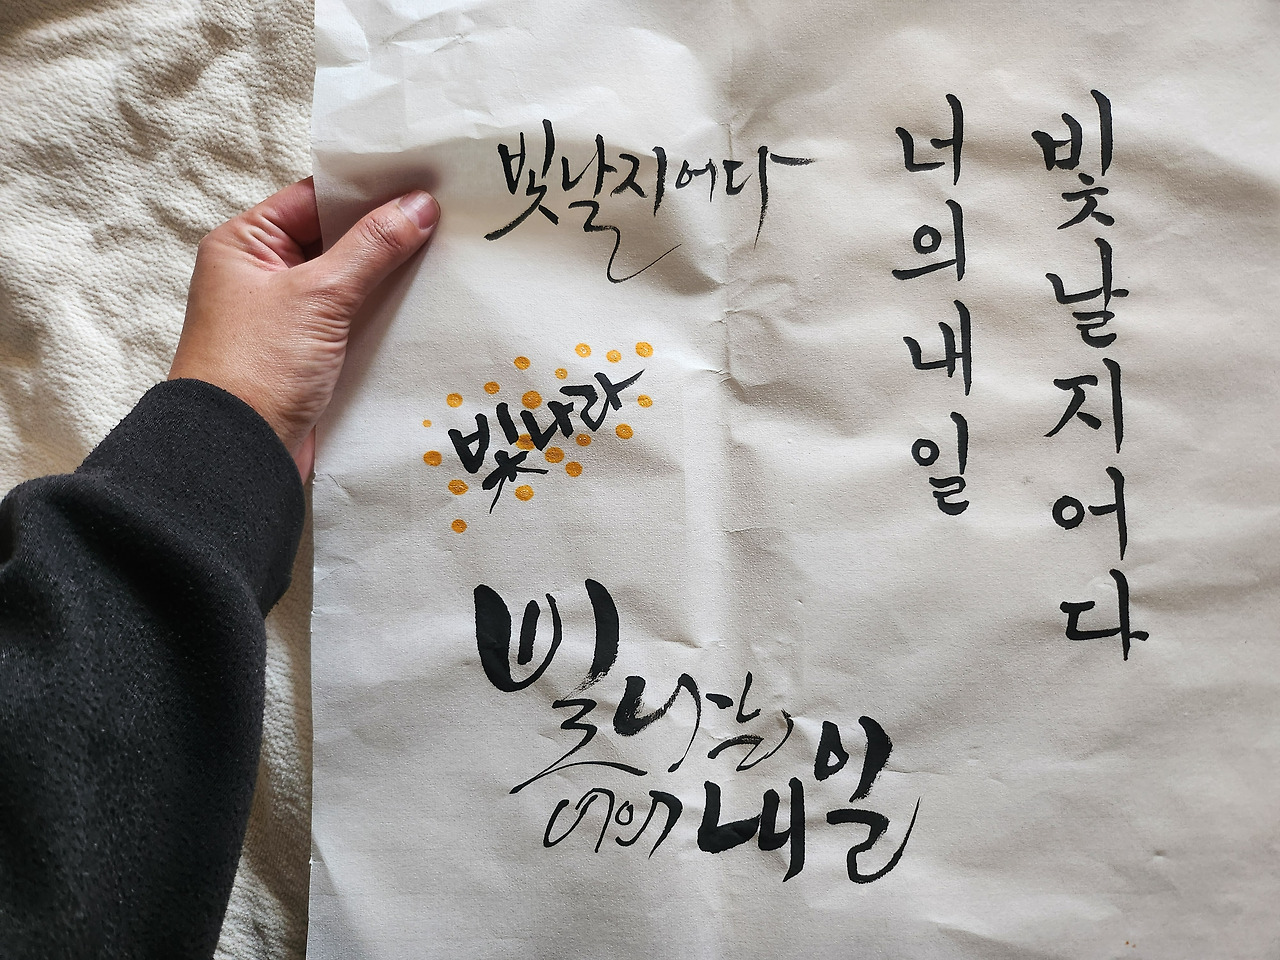 빛날지어다
빛나라
빛나는
너의 내일
빛날지어다
너의내일